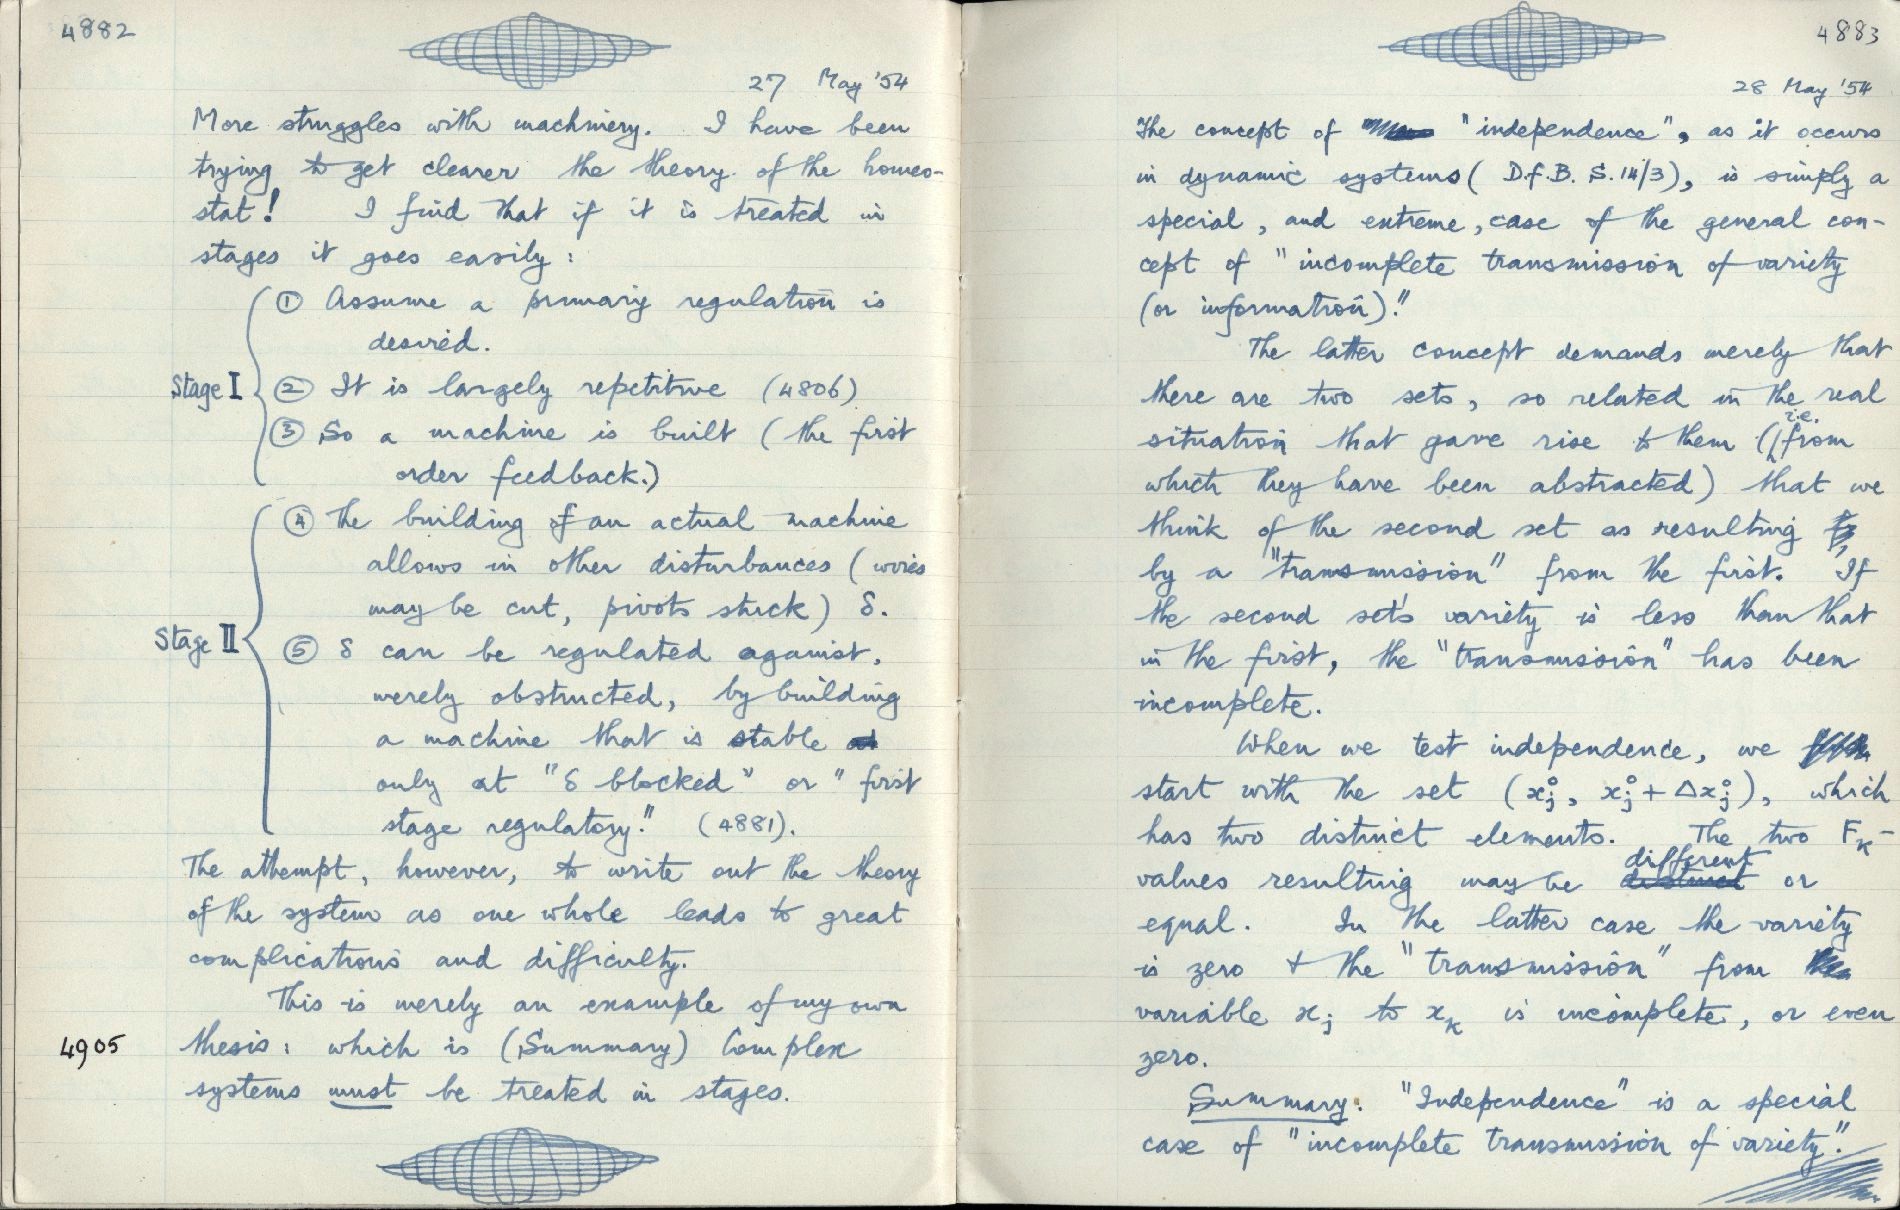 4882
27 May '54
More struggles with machinery. I have been
trying to get clearer the theory of the homeo-
stat! I find that if it is treated in
stages it goes easily:
① Assume a primary regulation is
desired.
Stage I ② It is largely repetitive (4806)
③ So a machine is built (the first
order feedback.)
④ The building of an actual machine
allows in other disturbances (wires
may be cut, pivots stick) δ.
Stage II ⑤ δ can be regulated against,
merely obstructed, by building
a machine that is stable
only at "δ blocked" or "first
stage regulatory." (4881).
The attempt, however, to write out the theory
of the system as one whole leads to great
complications and difficulty.
This is merely an example of my own
4905 thesis: which is (Summary) Complex
systems must be treated in stages.
4883
28 May '54
The concept of "independence", as it occurs
in dynamic systems (D.f.B. S. 14/3), is simply a
special, and extreme, case of the general con-
cept of "incomplete transmission of variety
(or information)."
The latter concept demands merely that
there are two sets, so related in the real
situation that gave rise to them (i.e. from
which they have been abstracted) that we
think of the second set as resulting
by a "transmission" from the first. If
the second set's variety is less than that
in the first, the "transmission" has been
incomplete.
When we test independence, we
start with the set (xⱼ°, xⱼ° + Δxⱼ°), which
has two distinct elements. The two Fₖ-
values resulting may be different or
equal. In the latter case the variety
is zero & the "transmission" from
variable xⱼ to xₖ is incomplete, or even
zero.
Summary: "Independence" is a special
case of "incomplete transmission of variety."